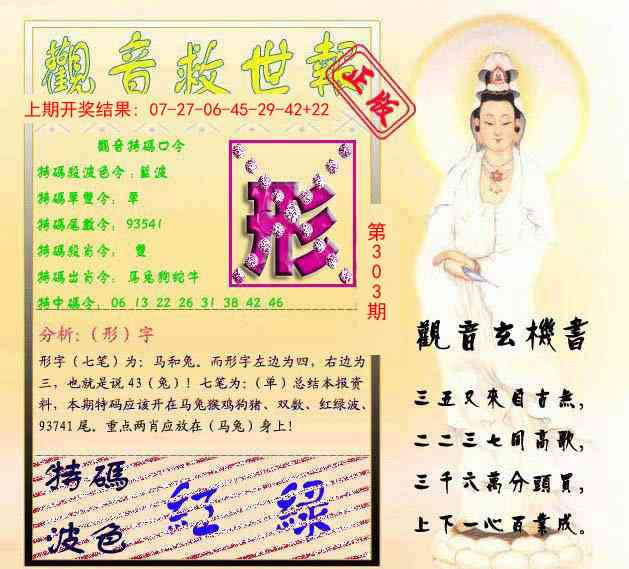 觀音救世報
正版
上期开奖结果: 07-27-06-45-29-42+22
觀音特碼口令
特碼殺波色令:藍波
特碼單雙令: 單
特碼尾數令: 93541
特碼殺肖令: 雙
特碼出肖令: 马兔狗蛇牛
特中碼令: 06 13 22 26 31 38 42 46
形
第303期
分析:(形)字
形字(七笔)为: 马和兔。而形字左边为四，右边为
三，也就是说 43(兔)! 七笔为:(单)总结本报资
料，本期特码应该开在马兔猴鸡狗猪、双数、红绿波、
93741 尾。重点两肖应放在(马兔)身上!
特碼
波色
紅 綠
觀音玄機書
三五又來自古無,
二二三七間高歌,
三千六萬分頭買,
上下一心百業成。